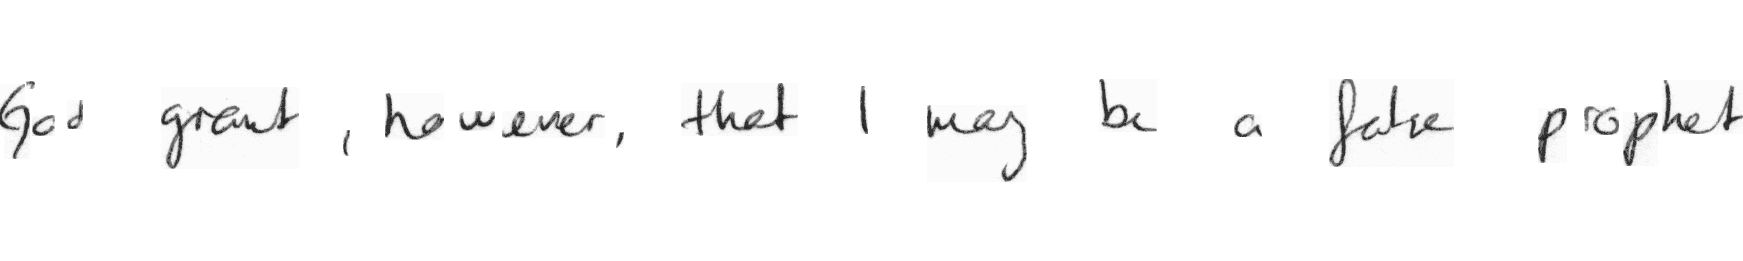 God grant, however, that I may be a false prophet